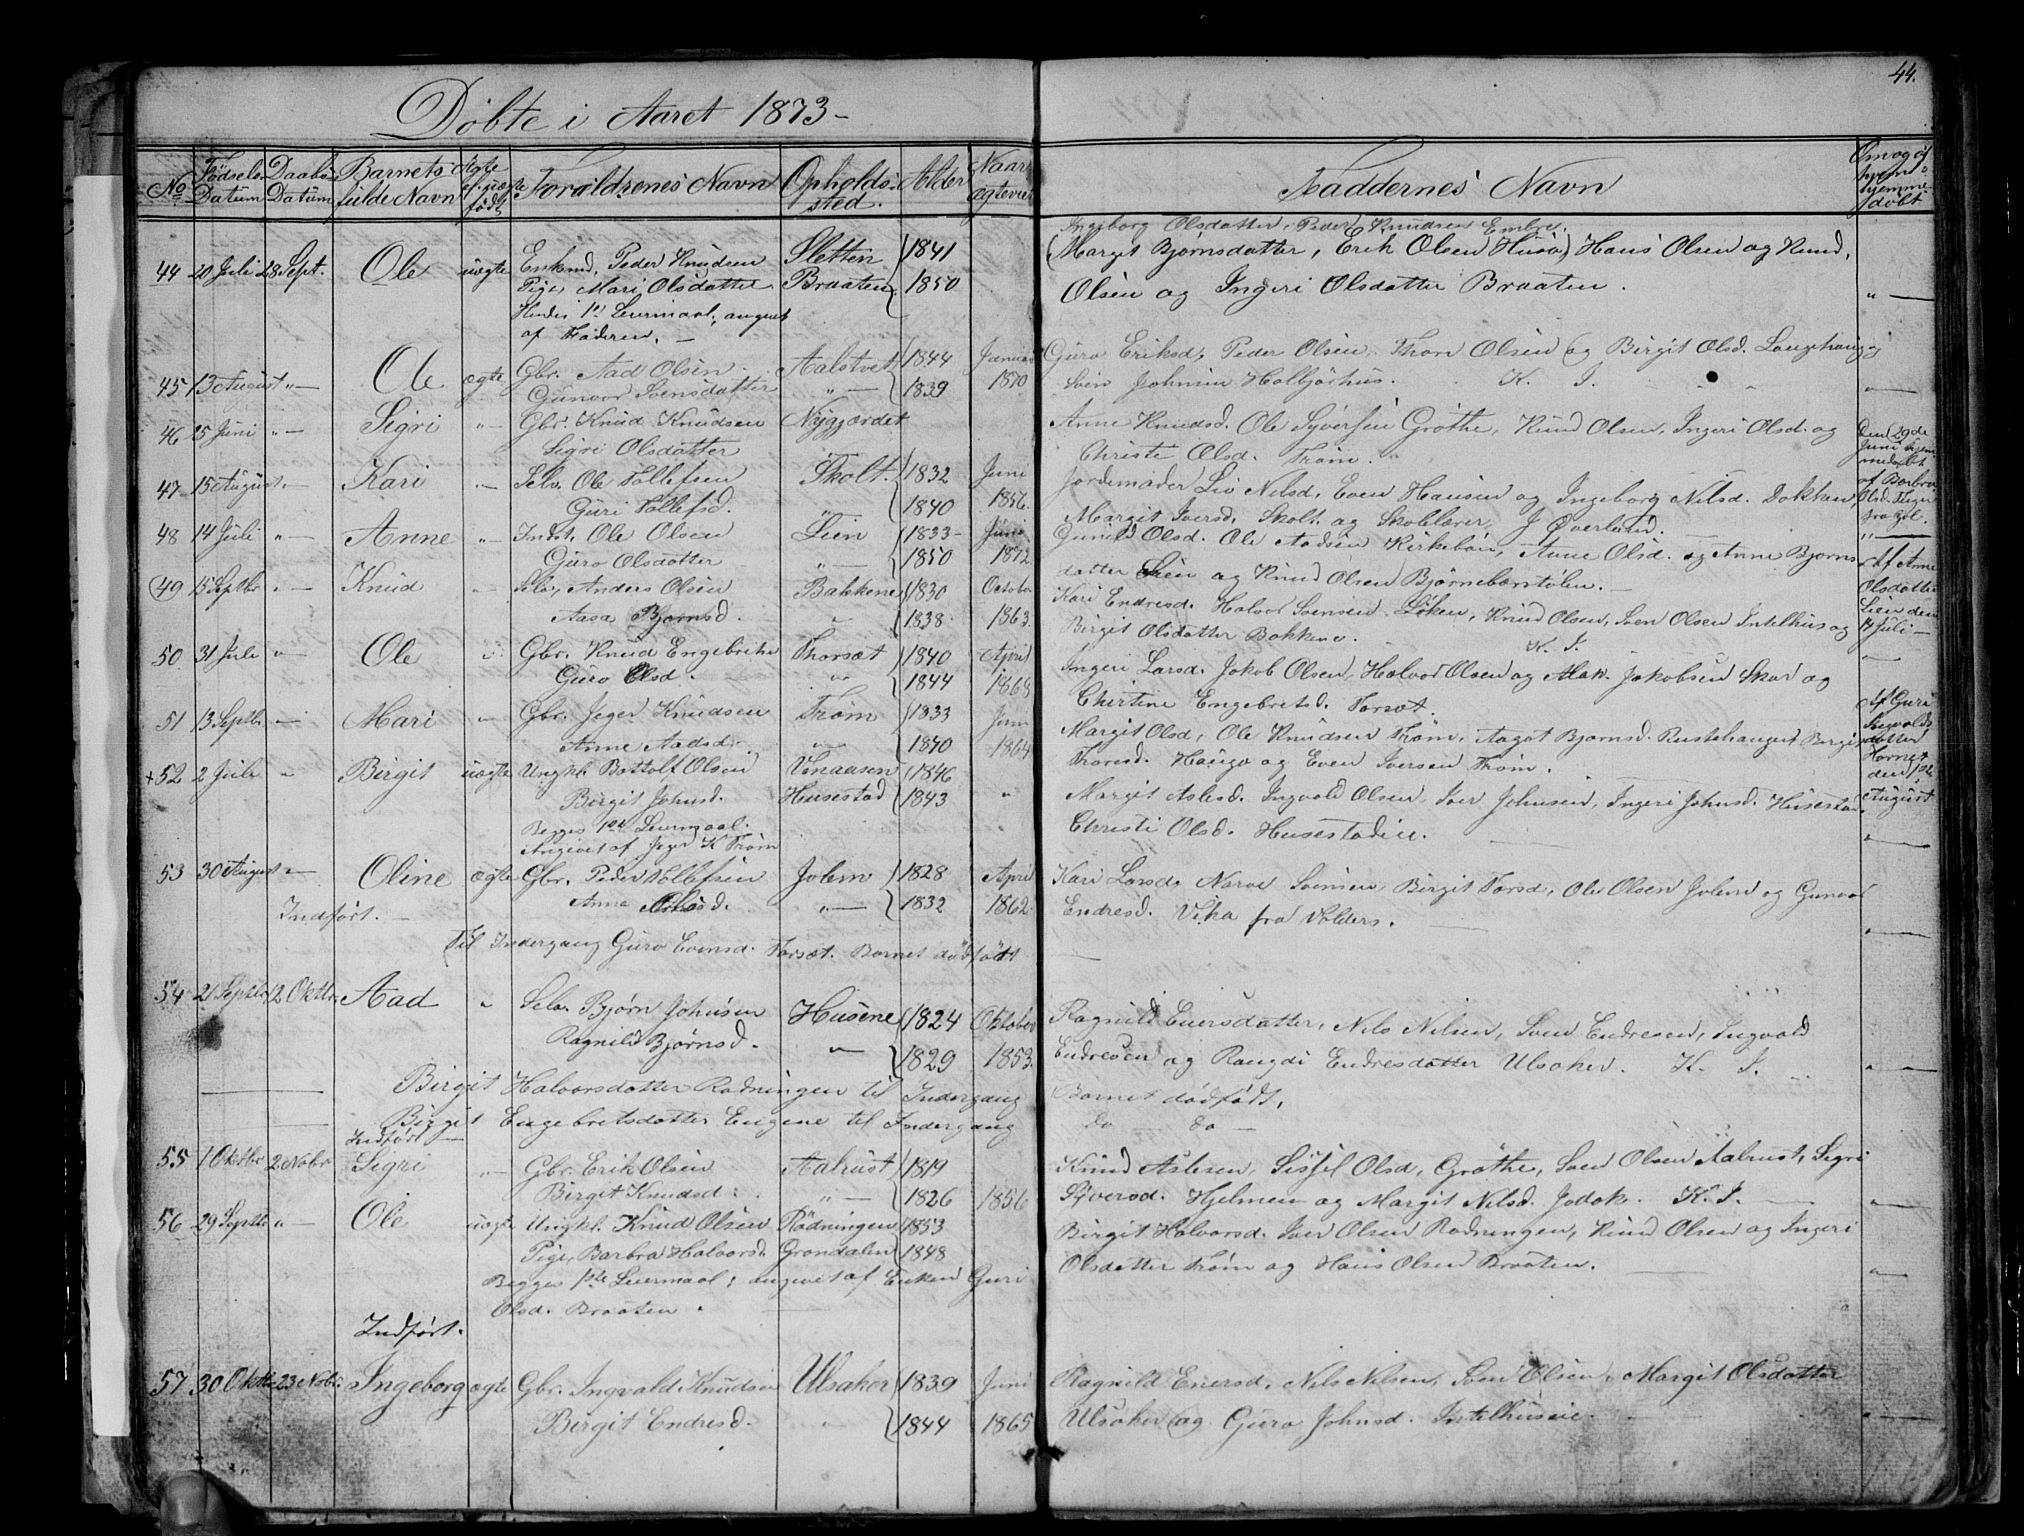 44.
Döbte i Aaret 1873-
No Fødsels Datum Daabs Datum Barnets fulde Navn Ægte el. uægte født Forældrenes Navn Opholds-sted. Alder Naar ægteviet
Faddernes Navn
Om og af hvem hjemme døbt
44 20 Juli 28 Sept. Ole uægte Enkmd. Peder Knudsen Sletten 1841
Pige Mari Olsdatter Braaten 1850
Hendes 1ste Leiermaal, angivet
af Faderen. —
Ingeborg Olsdatter, Peder Knudsen Embre.
(Margit Bjørnsdatter, Erik Olsen Huso) Hans Olsen og Knud
Olsen og Ingeri Olsdatter Braaten. " —
45 13 August "— Ole ægte Gbr. Aad Olsen Aalstvet 1844 Januar
Gunvor Svensdatter "— 1839 1870
Guro Eriksd, Peder Olsen, Thor Olsen og Birgit Olsd. Langehaug og
Svein Johnsen Halbjørhus. K. I. "—
46 25 Juni "— Sigri "— Gbr. Knud Knudsen Nygjærdet
Sigri Olsdatter
Anne Knudsd. Ole Syversen Grøthe, Knud Olsen, Ingeri Olsd. og
Christi Olsd. Trøm.
Den 29de Juni hjemmedøbt af Barbro Olsd.
47 15 August "— Kari "— Selv. Ole Tollefsen Skolt. 1832 Juni
Guri Tollefsd. "— 1840 1856
Jordemoder Liv Nilsd, Even Hansen og Ingeborg Nilsd. Dokken,
Margit Iversd. Skolt og Skolelærer J Øverlund. "—
48 14 Juli "— Anne "— Indst. Ole Olsen Lien 1833 Juni
Guro Olsdatter "— 1850 1872
Gunild Olsd. Ole Aadsen Kirkebøn, Anne Olsd. og Anne Bjørns
datter Lien og Knud Olsen Bjørnebærstølen. —
Af Anne Olsdatter Lien den 14 Juli —
49 15 Septbr "— Knud "— Selv. Anders Olsen Bakkene 1830 October
Aasa Bjørnsd. " 1838 1863.
Kari Endresd. Halvor Svensen Løken, Knud Olsen, Sven Olsen Intelhus og
Birgit Olsdatter Bakkene. K. I. "—
50 31 Juli " Ole " Gbr. Knud Engebrits. Thorsæt 1840 April
Guro Olsd. "— 1844 1868
Ingeri Larsd. Jakob Olsen, Halvor Olsen og Aslak Jakobsen Skar og
Christine Engebretsd. Torsæt.
51 13 Septbr "— Mari " Gbr. Jeger Knudsen Trøm 1833 Juni
Anne Aadsd. "— 1840 1864
Margit Olsd, Ole Knudsen Trøm, Aagot Bjørnsd. Rustehaugen, Birgit
Thoresd. Haugo og Even Iversen Trøm.
Af Guri Ingvaldsdatter den 1ste August
+52 2 Juli " Birgit uægte Ungkl. Bottolf Olsen Venaasen 1846
Birgit Johnsd. Husestad 1843 "
Begges 1ste Leiermaal.
Angivet af Jeger K Trøm
Margit Aslesd. Ingvald Olsen, Iver Johnsen, Ingeri Johnsd. Husestad
Christi Olsd. Husestadeie. "—
53 30 August "— Oline ægte Gbr. Peder Tollefsen Jolem 1828 April
Anne Olsd. "— 1832 1862
Indført. —
Kari Larsd, Narve Svensen, Birgit Torsd, Ole Olsen Jolem og Gunvor
Endresd. Viha fra Valders. — "—
Til Indergang Guro Evensd. Torsæt. Barnet dødfødt —
54 21 Septbr 12 Oktbr. Aad " Selv. Bjørn Johnsen Husene 1824 Oktober
Ragnild Bjørnsd. "— 1829 1853.
Ragnild Eversdatter, Nils Nilsen, Sven Endresen, Ingvald
Endresen og Rangdi Endresdatter Ulsaker. K. I. "—
— Birgit Halvorsdatter Rødningen til Indergang Barnet dødfødt,
— Birgit Engebretsdatter Engene til Indergang do do —
Indført —
55 1 Oktbr 2 Nobr Sigri "— Gbr. Erik Olsen Aalrust 1819
Birgit Knudsd. "— 1826 1856
Knud Aslesen, Sissel Olsd, Grøthe, Sven Olsen Aalrust, Sigri
Syversd. Hjelmen og Margit Nilsd. Jodok. K. I. — "—
56 29 Septbr "— Ole uægte Ungkl. Knud Olsen Rødningen 1853
Pige, Barbra Halvorsd. Grøndalen 1848
Begges 1ste Leiermaal; angivet af Enken Guri
Olsd. Braaten.
Birgit Halvorsd. Iver Olsen Rødningen, Knud Olsen og Ingeri
Olsdatter Trøm og Hans Olsen Braaten. — "—
Indført.
57 30 Oktbr 23 Nobr. Ingeborg ægte Gbr. Ingvald Knudsen Ulsaker 1839 Juni
Birgit Endresd. " 1844 1865
Ragnild Eversd. Nils Nilsen, Sven Olsen, Margit Olsdatter
Ulsaker og Guro Johnsd. Intelhuseie. "—